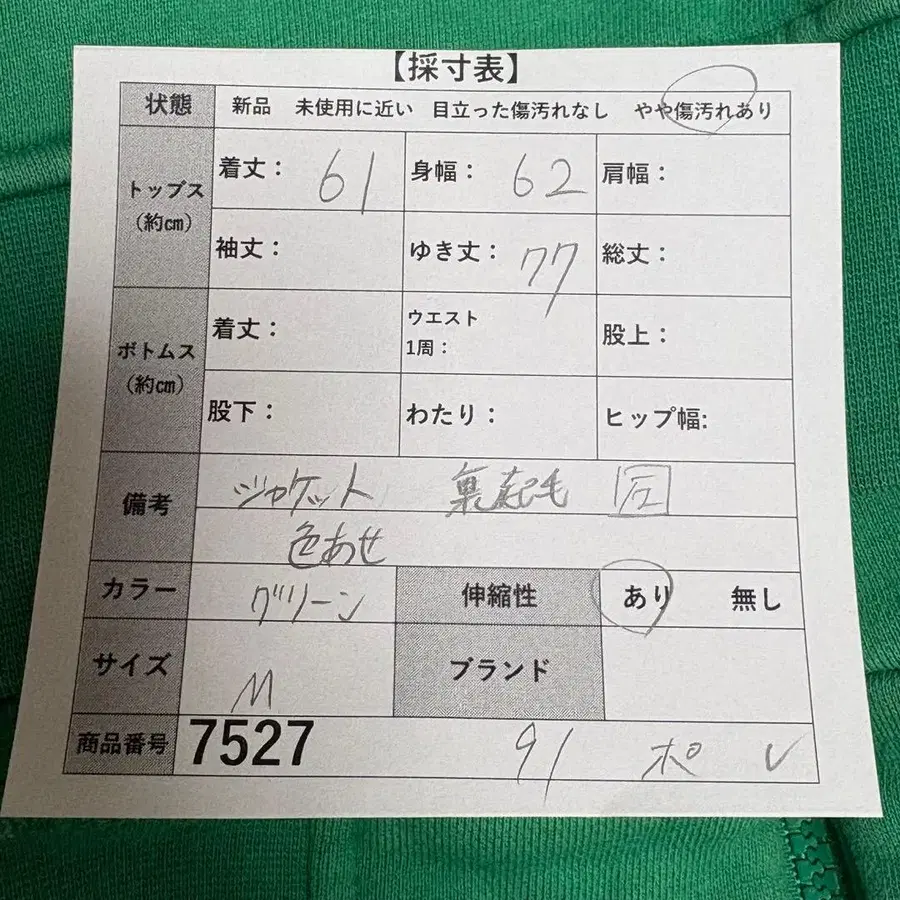 【採寸表】
状態 新品 未使用に近い 目立った傷汚れなし やや傷汚れあり
トップス（約㎝） 着丈： 61 身幅： 62 肩幅：
袖丈： ゆき丈： 77 総丈：
ボトムス（約㎝） 着丈： ウエスト1周： 股上：
股下： わたり： ヒップ幅:
備考 ジャケット 裏起毛
色あせ
カラー グリーン 伸縮性 あり 無し
サイズ M ブランド
商品番号 7527 91 ポ レ